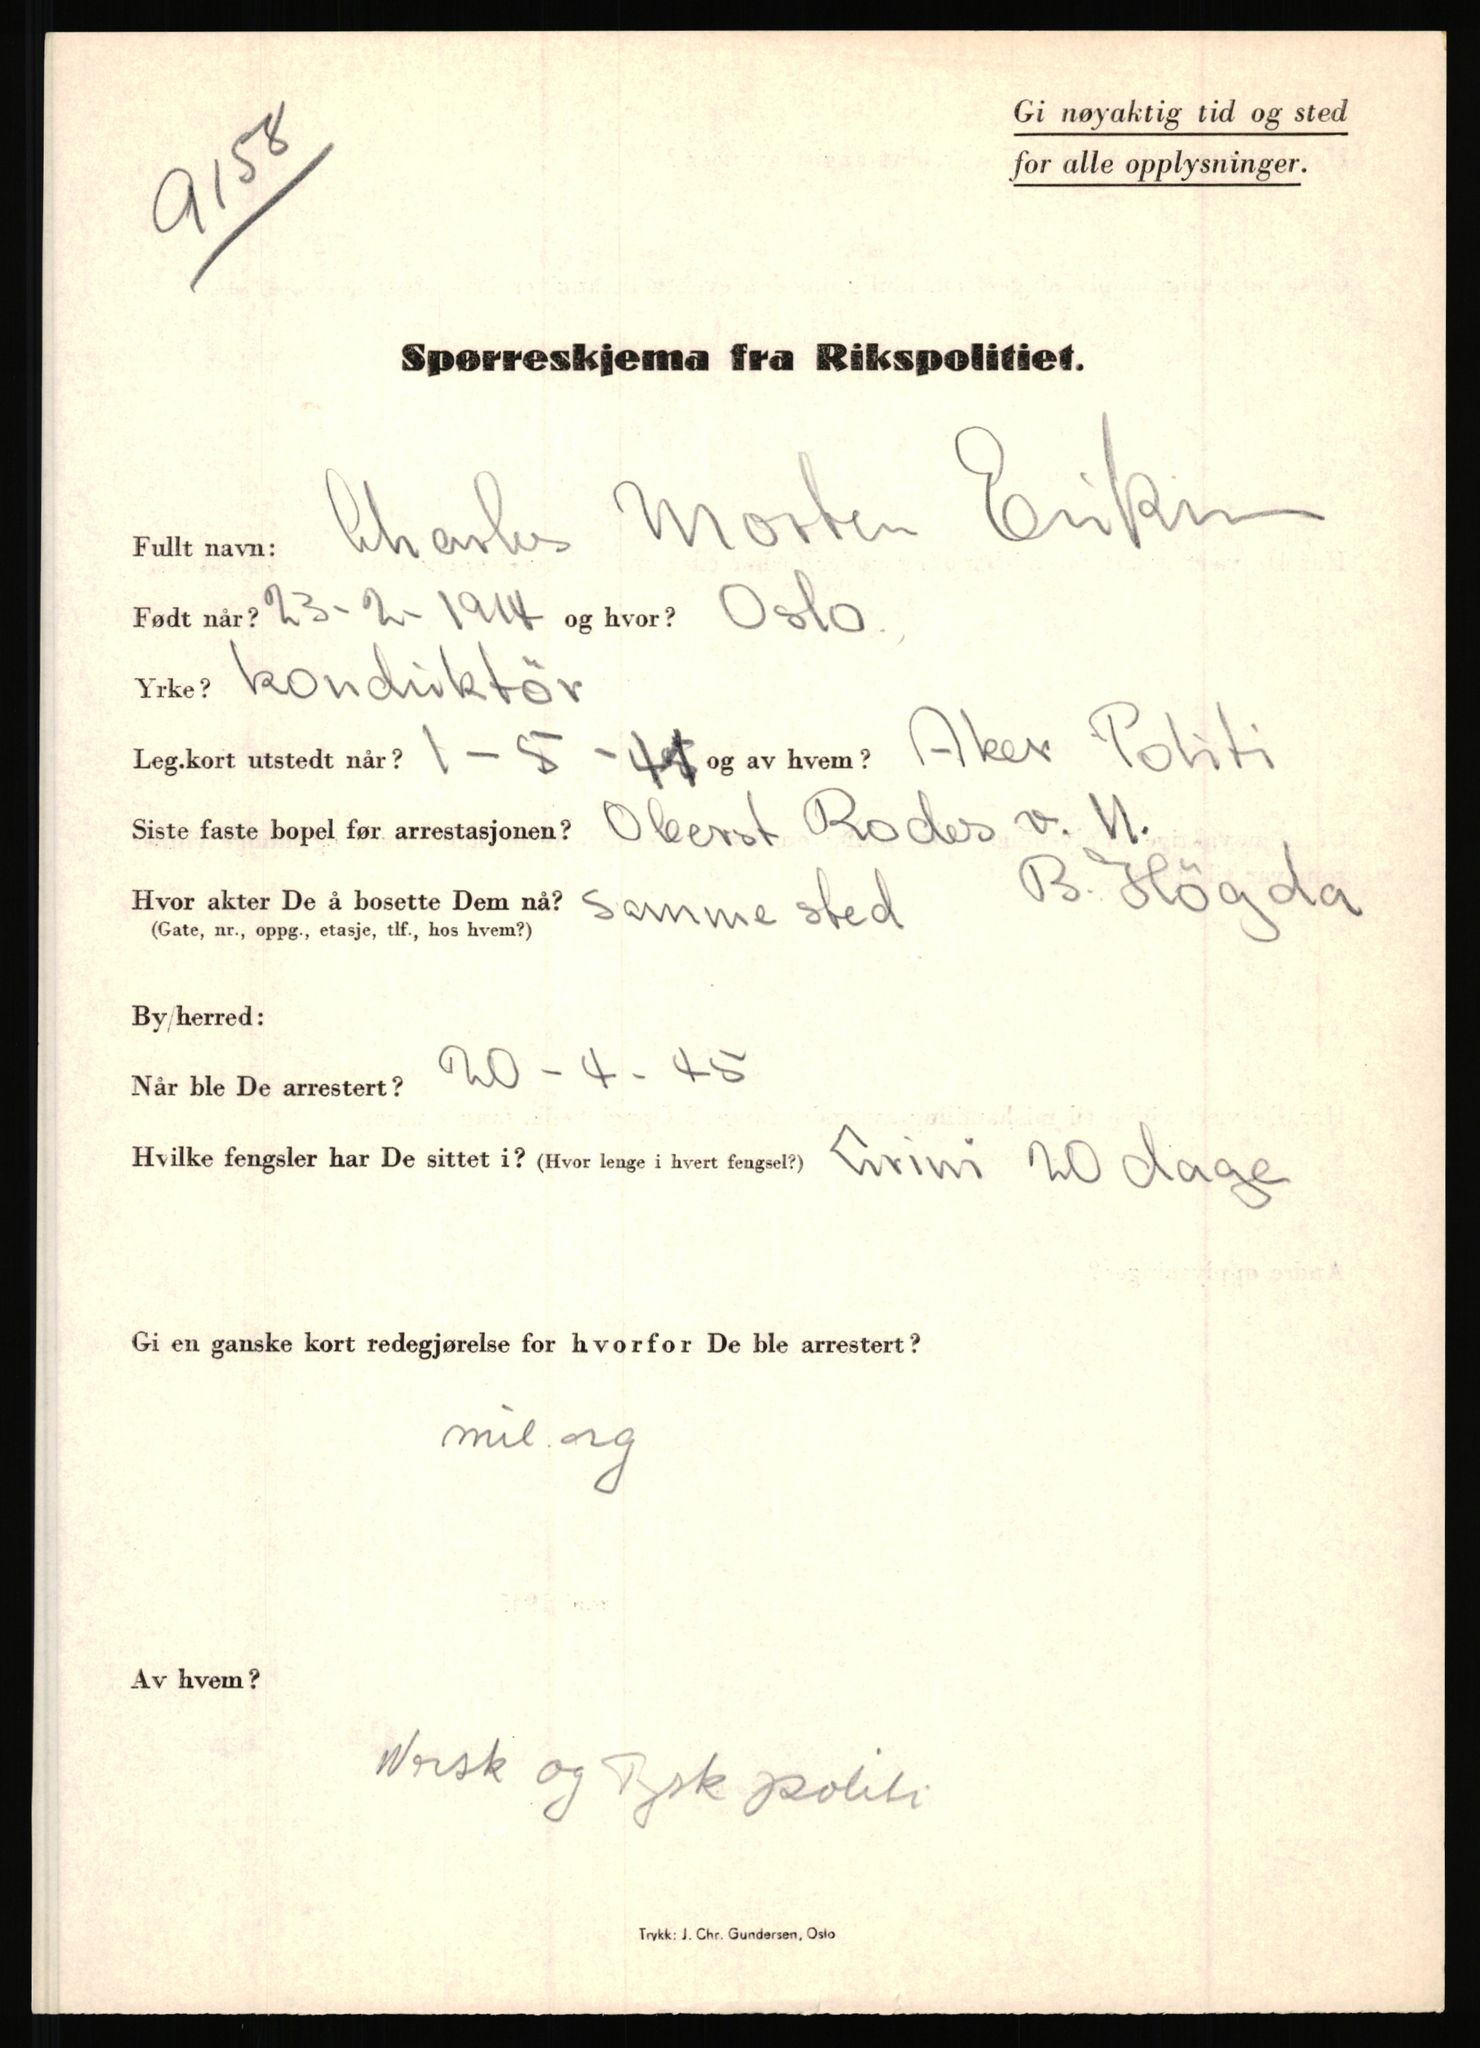 Gi nøyaktig tid og sted
for alle opplysninger.
9158
Spørreskjema fra Rikspolitiet.
Fullt navn: Charles Morten
Født når? 23-2-1914 og hvor? Oslo.
Yrke? konduktör
Leg.kort utstedt når? 1-5- og av hvem? Aker Politi
Siste faste bopel før arrestasjonen? Oberst Rodes v. 11.
B. Högda
Hvor akter De å bosette Dem nå? samme sted
(Gate, nr., oppg., etasje, tlf., hos hvem?)
By/herred:
Når ble De arrestert? 20-4-45
Hvilke fengsler har De sittet i? (Hvor lenge i hvert fengsel?) Grini 20 dage
Gi en ganske kort redegjørelse for hvorfor De ble arrestert?
mil. org
Av hvem?
Norsk og Tysk politi
Trykk: J. Chr. Gundersen, Oslo